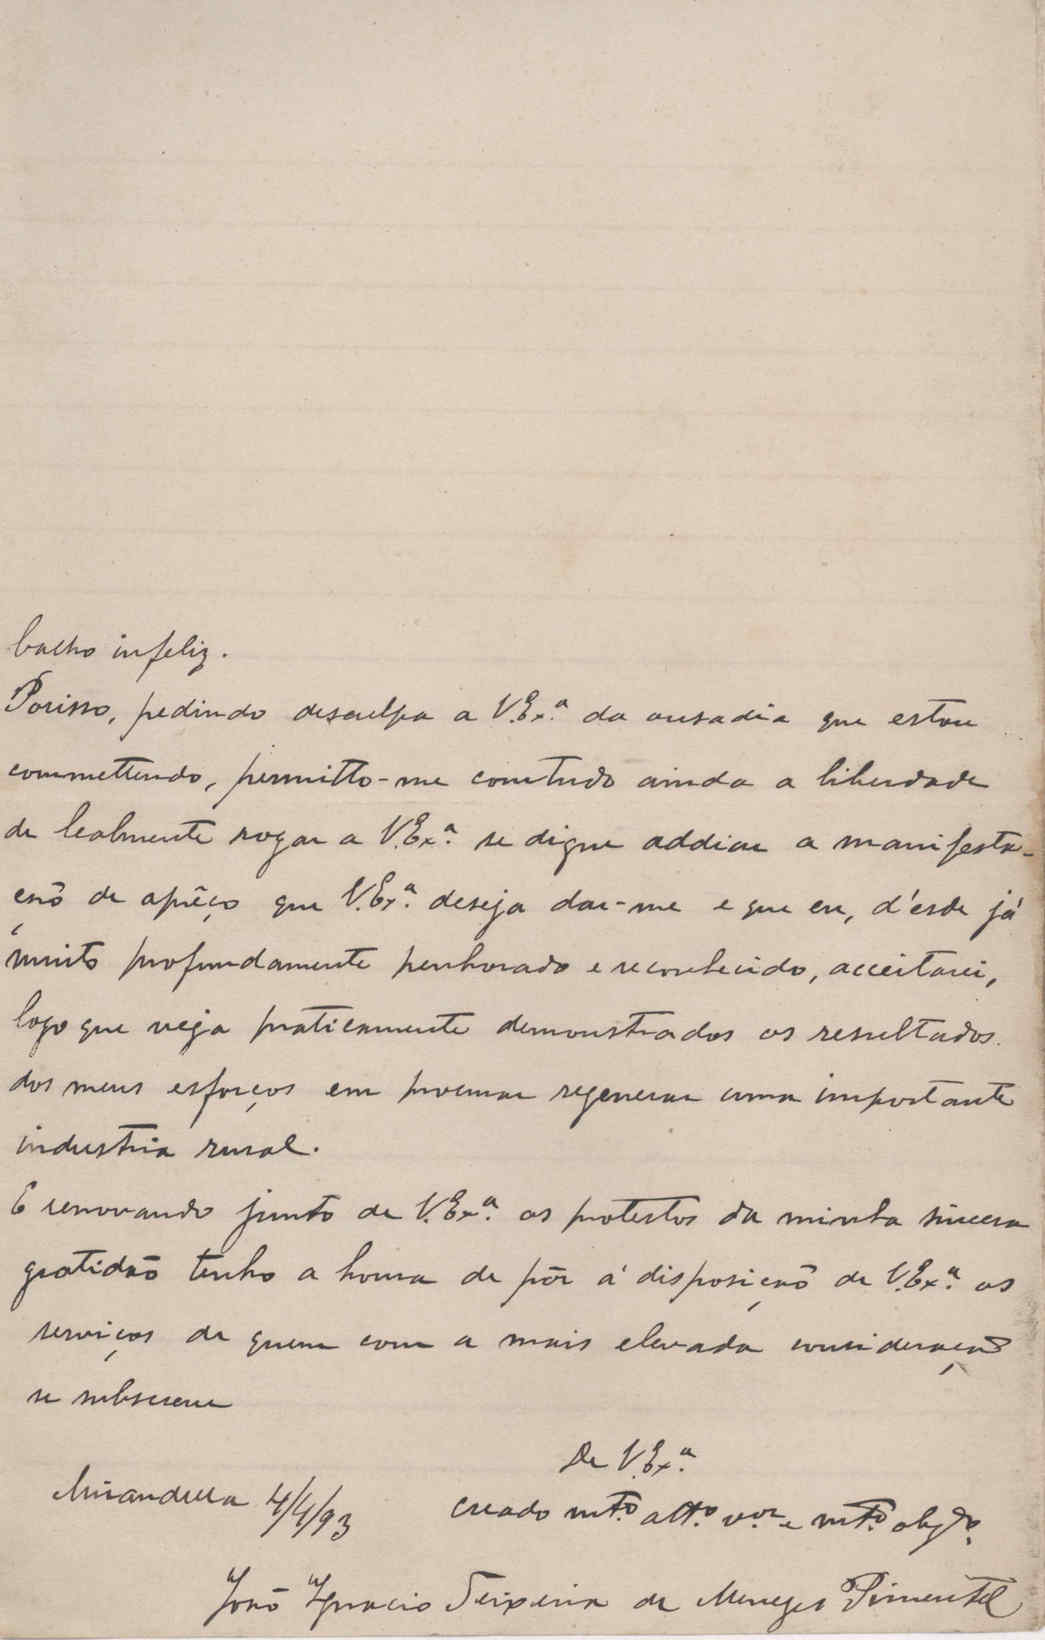 balho infeliz.
Porisso, pedindo desculpa a V. Ex.ª da ousadia que estou
commettendo, permitto-me comtudo ainda a liberdade
de lealmente rogar a V. Ex.ª se digne addiar a manifesta-
ção de aprêço que V. Ex.ª deseja dar-me e que eu, d'esde já
muito profundamente penhorado e reconhecido, acceitarei,
logo que veja praticamente demonstrados os resultados
dos meus esforços em procurar regenerar uma importante
industria rural.
E renovando junto de V. Ex.ª os protestos da minha sincera
gratidão tenho a honra de pôr á disposição de V. Ex.ª os
serviços de quem com a mais elevada consideração
se subscreve
De V. Ex.ª
Mirandella 4/4/93
creado mt.º att.º v.or e mt.º obg.do
João Ignacio Teixeira de Menezes Pimentel